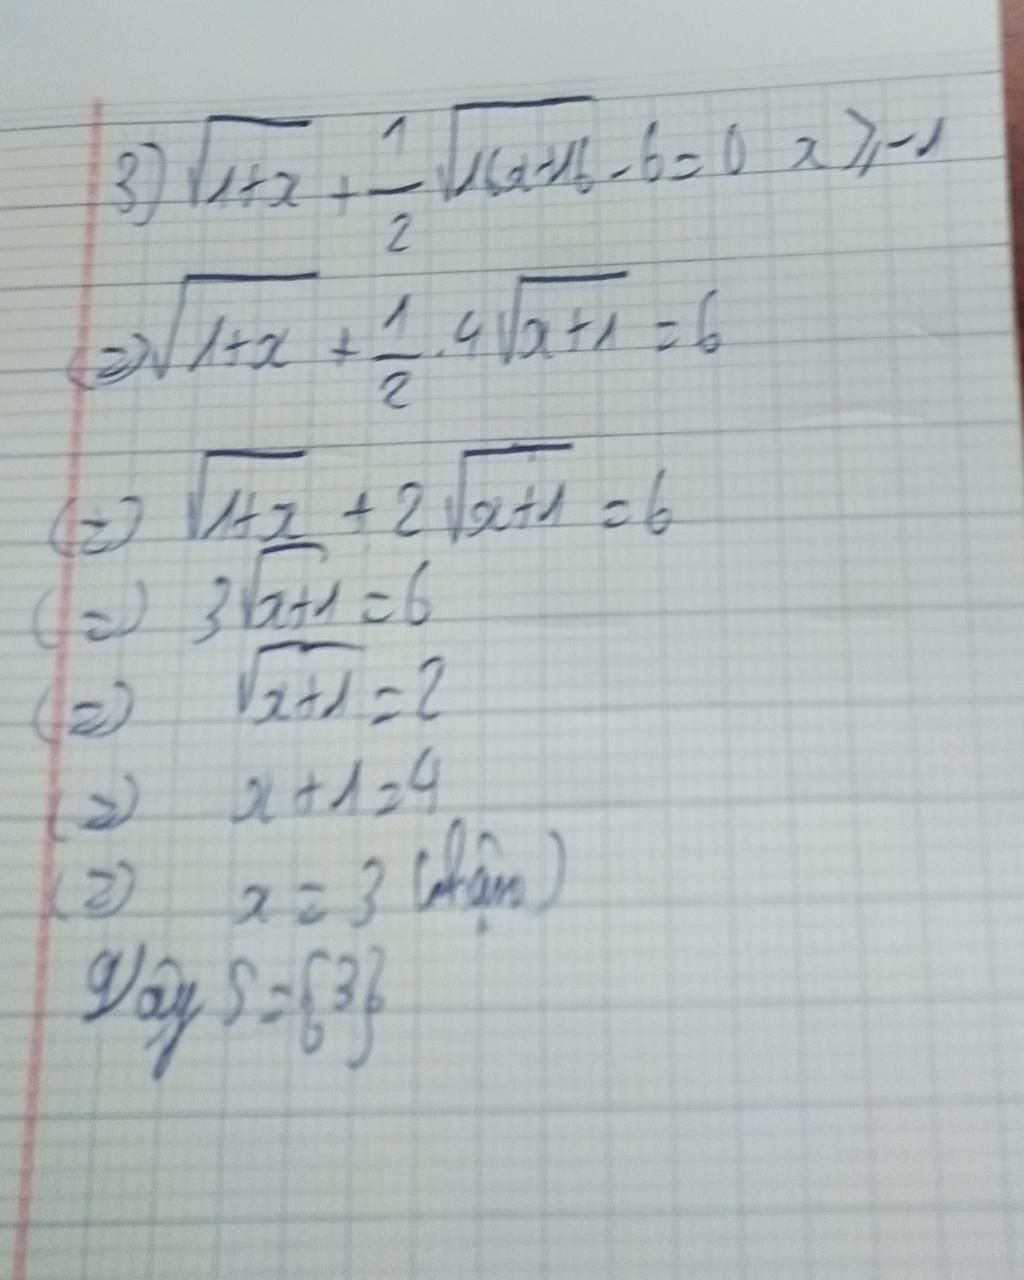 3) √(1+x) + 1/2 √(16x+16) - 6 = 0 x ⩾ -1
(=) √(1+x) + 1/2 . 4√(x+1) = 6
(=) √(1+x) + 2√(x+1) = 6
(=) 3√(x+1) = 6
(=) √(x+1) = 2
(=) x + 1 = 4
(=) x = 3 (nhận)
Vậy S = {3}